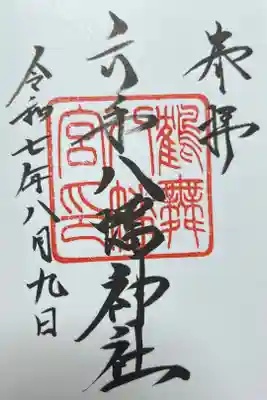 奉拝
六和八幡神社
令和七年八月九日